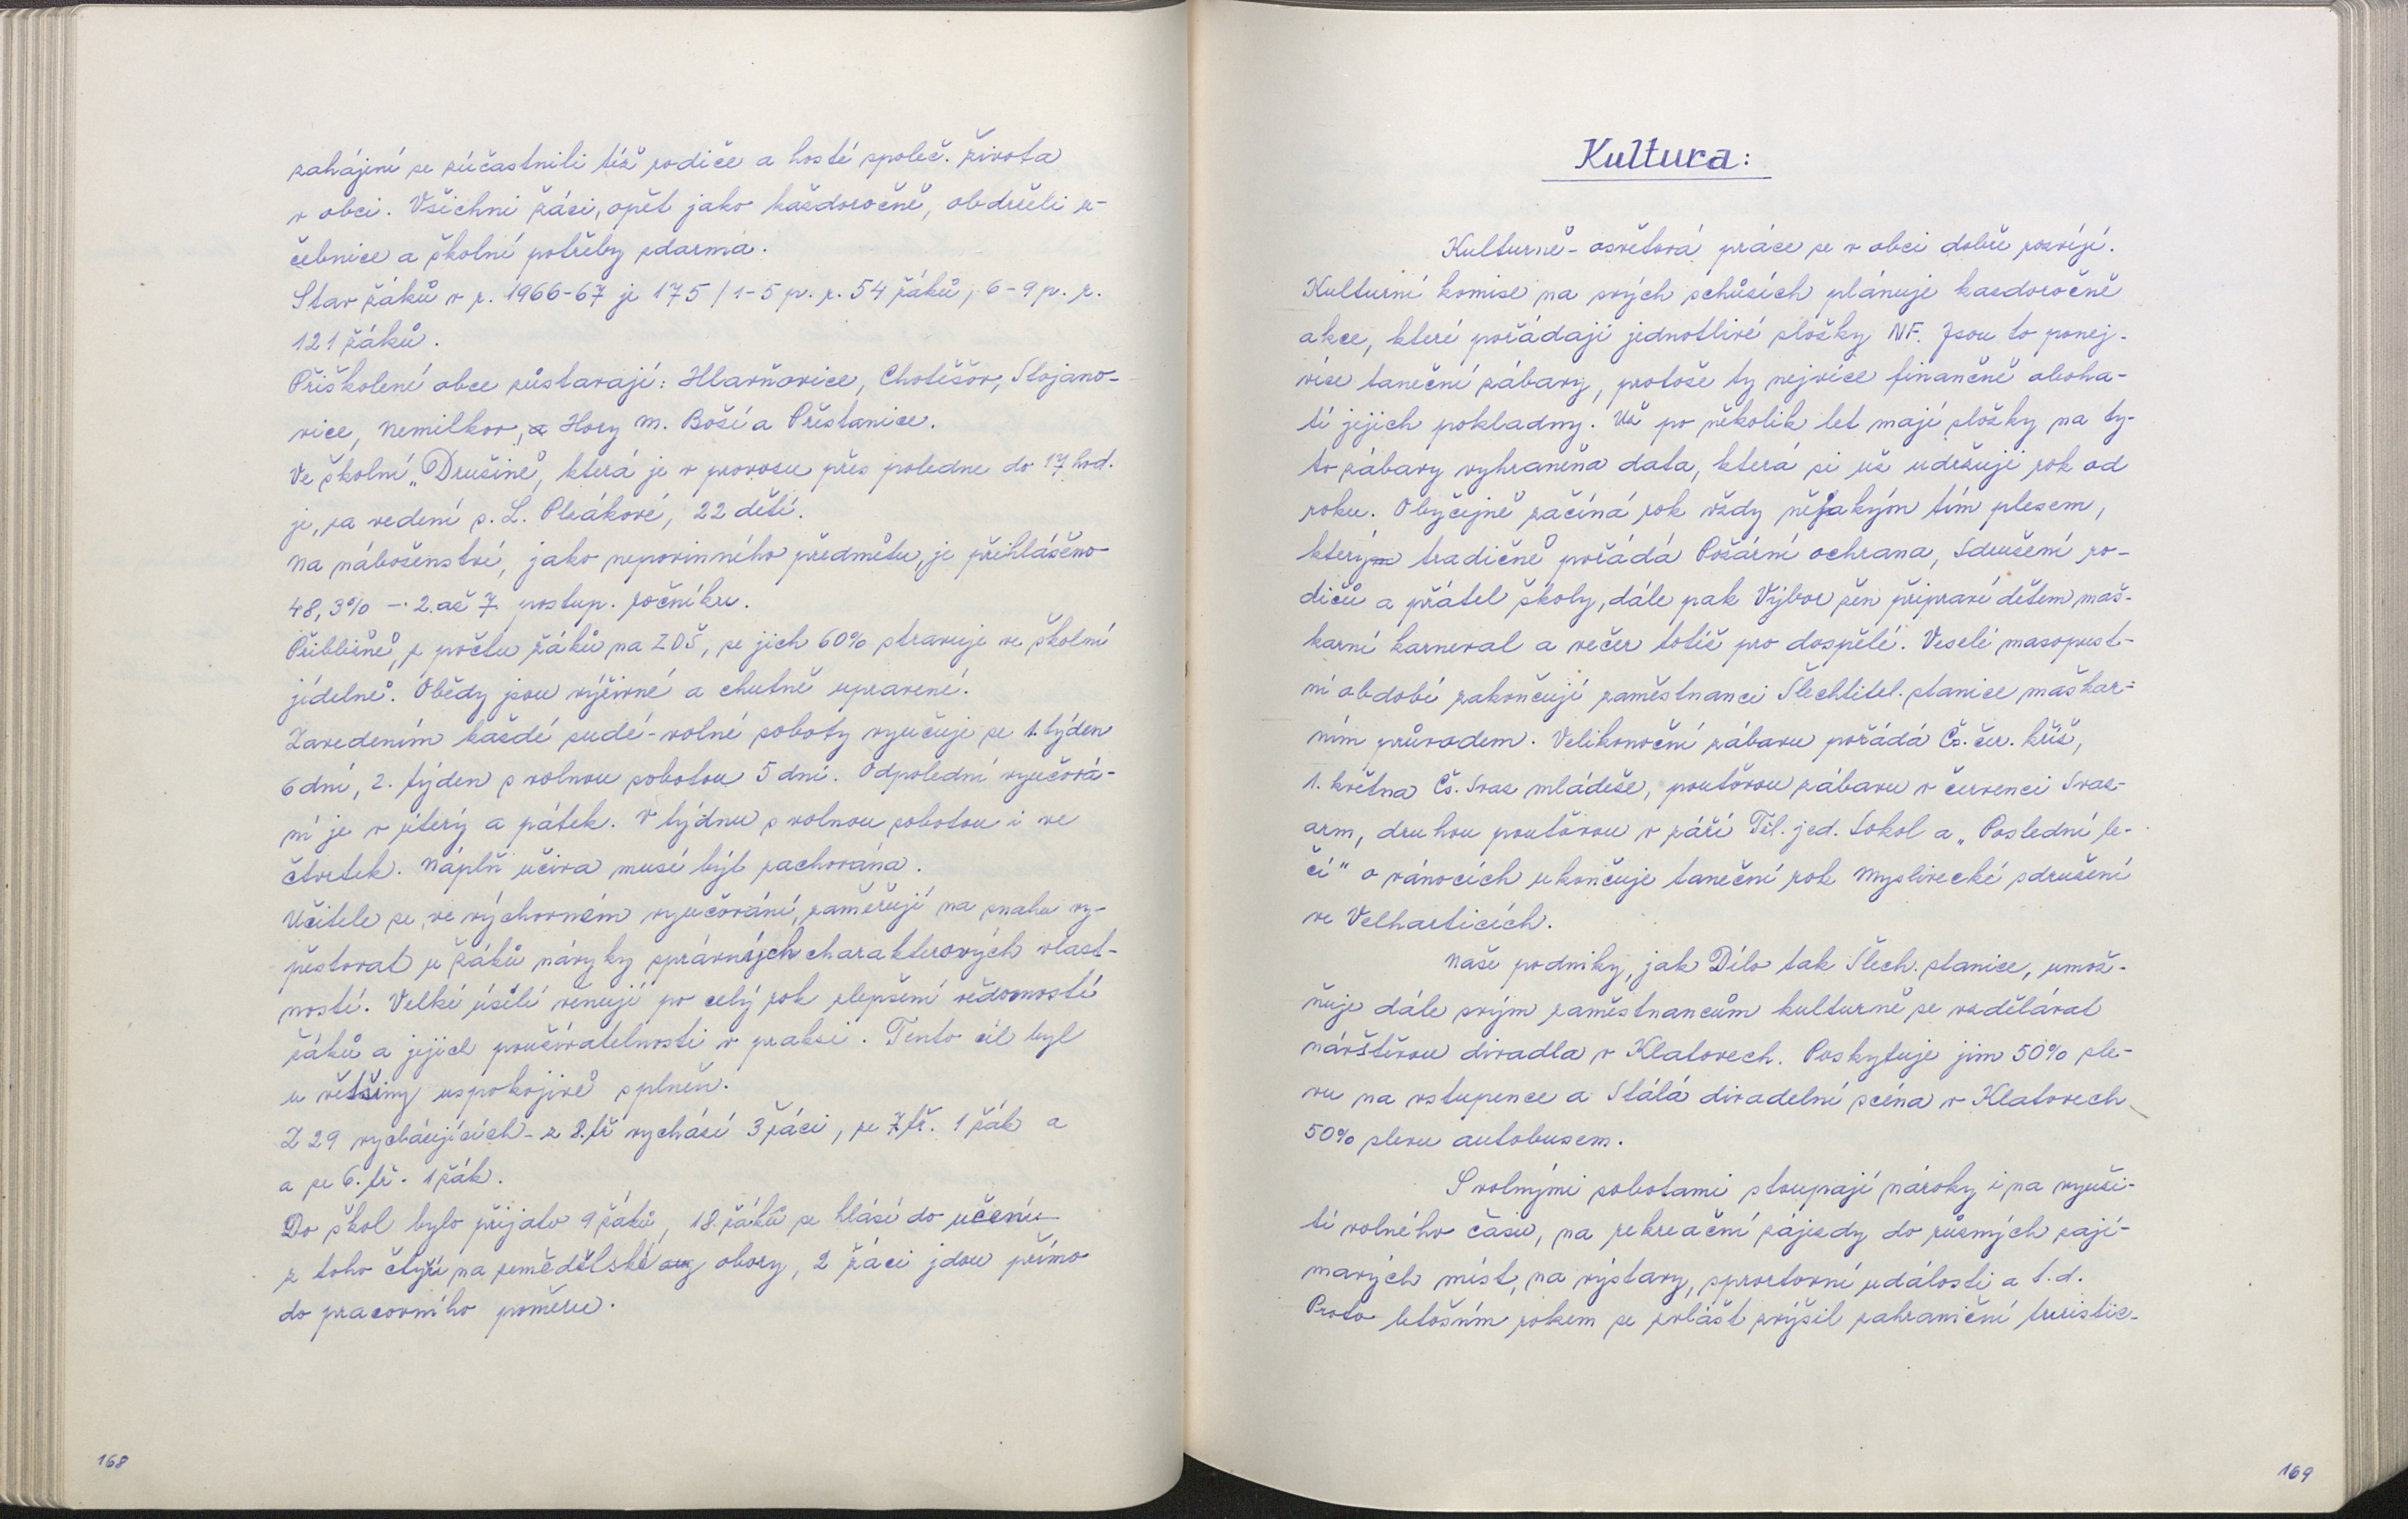 zahájení se zúčastnili též rodiče a hosté společ. života
v obci. Všichni žáci, opět jako každoročně, obdrželi u-
čebnice a školní potřeby zdarma.
Stav žáků v r. 1966-67 je 175 / 1-5 p. r. 54 žáků, 6-9 p. r.
121 žáků.
Přiškolené obce zůstavají: Hlavňovice, Chotěšov, Stojano-
vice, Nemilkov, a Hory M. Boží a Přestanice.
Ve školní „Družině, která je v provozu přes poledne do 17 hod.
je, za vedení s. L. Plzákové, 22 dětí.
Na náboženství, jako nepovinného předmětu, je přihlášeno
48,3% - 2. až 7. postup. ročníku.
Přibližně, z počtu žáků na ZDŠ, se jich 60% stravuje ve školní
jídelně. Obědy jsou výživné a chutně upravené.
Zavedením každé sudé-volné soboty vyučuje se 1. týden
6 dní, 2. týden s volnou sobotou 5 dní. Odpolední vyučová-
ní je v úterý a pátek. V týdnu s volnou sobotou i ve
čtvrtek. Náplň učiva musí být zachována.
Učitele se, ve výchovném vyučování, zaměřují na snahu vy-
pěstovat u žáků návyky správných charakterových vlast-
ností. Velké úsilí věnují po celý rok zlepšení vědomostí
žáků a jejich používatelnosti v praksi. Tento cíl byl
u většiny uspokojivě splněn.
Z 29 vycházejících - z 8. tř vychází 3 žáci, ze 7. tř. 1 žák a
a ze 6. tř. 1 žák.
Do škol bylo přijato 9 žáků, 18. žáků se hlásí do učení
z toho čtyři na zemědělské obory, 2 žáci jdou přímo
do pracovního poměru.
168
Kultura:
Kulturně-osvětová práce se v obci dobře rozvíjí.
Kulturní komise na svých schůzích plánuje kazdoročně
akce, které pořádají jednotlivé složky NF. Jsou to ponej-
více taneční zábavy, protože ty nejvíce finančně oboha-
tí jejich pokladny. Už po několik let mají složky na ty-
to zábavy vyhraněna data, která si už udržují rok od
roku. Obyčejně začíná rok vždy nějakým tím plesem,
který tradičně pořádá Požární ochrana, Sdružení ro-
dičů a přátel školy, dále pak Výbor žen připraví dětem maš-
karní karneval a večer totéž pro dospělé. Veselé masopust-
ní období zakončují zaměstnanci Šlechtitel. stanice maškar-
ním průvodem. Velikonoční zábavu pořádá Čs. čer. kříž,
1. května Čs. Svaz mládeže, pouťovou zábavu v červenci Svaz-
arm, druhou pouťovou v září Těl. jed. Sokol a „Poslední le-
čí" o vánocích ukončuje taneční rok Myslivecké sdružení
ve Velharticích.
Naše podniky, jak Dílo tak Šlech. stanice, umož-
ňuje dále svým zaměstnancům kulturně se vzdělávat
návštěvou divadla v Klatovech. Poskytuje jim 50% sle-
vu na vstupence a Stálá divadelní scéna v Klatovech
50% slevu autobusem.
S volnými sobotami stoupají nároky i na využi-
tí volného času, na rekreační zájezdy do různých zají-
mavých míst, na výstavy, sprortovní události a t. d.
Proto letošním rokem se zvlášt zvýšil zahraniční turistic-
169